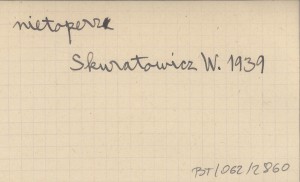 nietoperze
Skuratowicz W. 1939
BT/062/2860